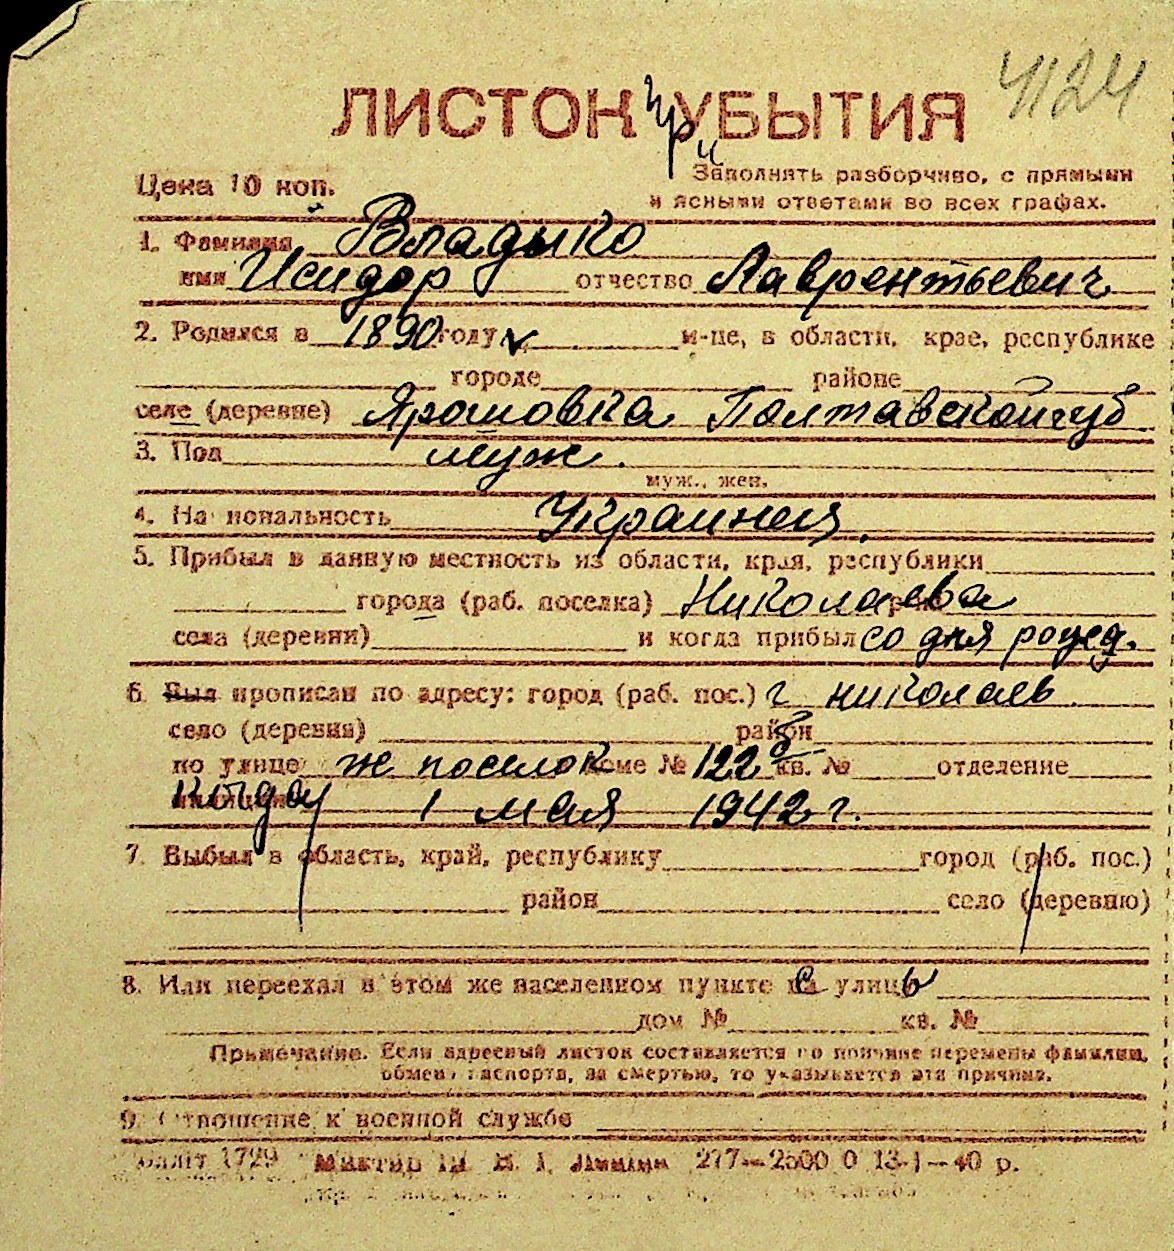 4124
ЛИСТОК при УБЫТИЯ
Цена 10 коп.
Заполнять разборчиво, с прямыми
и ясными ответами во всех графах.
1. Фамилия Владыко
имя Исидор отчество Лаврентьевич
2. Родился в 1890 году м-це, в области, крае, республике
городе районе
селе (деревне) Ярошовка Полтавской губ
3. Пол муж.
муж., жен.
4. Национальность Украинец.
5. Прибыл в данную местность из области, края, республики
города (раб. поселка) Николаева
села (деревни) и когда прибыл со дня рожд.
6. Был прописан по адресу: город (раб. пос.) г николаев
село (деревня) район
по улице жс поселок доме № 122 кв. № отделение
когда 1 мая 1942 г.
7. Выбыл в область, край, республику город (раб. пос.)
район село (деревню)
8. Или переехал в этом же населенном пункте с улицы
дом № кв. №
Примечание. Если адресный листок составляется по причине перемены фамилии,
обмена паспорта, за смертью, то указывается эта причина.
9. Отношение к военной службе
1729 277—2500 0 13-1—40 р.